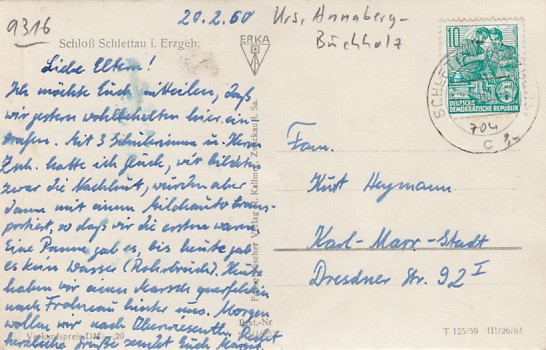 9316
20.2.60
Krs. Annaberg-
Buchholz
Schloß Schlettau i. Erzgeb.
ERKA
Liebe Eltern!
Ich möchte Euch mitteilen, daß
wir gestern wohlbehalten hier ein-
trafen. Mit 3 Schülerinnen u. Herrn
Zsch. hatte ich Glück, wir bildeten
zwar die Nachhut, wurden aber
dann mit einem Milchauto trans-
portiert, so daß wir die ersten waren.
Eine Panne gab es, bis heute gab
es kein Wasser (Rohrbruch). Heute
haben wir einen Marsch querfeldein
nach Frohnau hinter uns. Morgen
wollen wir nach Oberwiesenthal. Recht
herzliche Grüße sendet Euch
Verkaufspreis DM -,20
Best.-Nr.
10
5
DEUTSCHE
DEMOKRATISCHE REPUBLIK
704
c
Fam.
Kurt Heymann
Karl-Marx-Stadt
Dresdner Str. 92 I
T 125/59 III/26/61